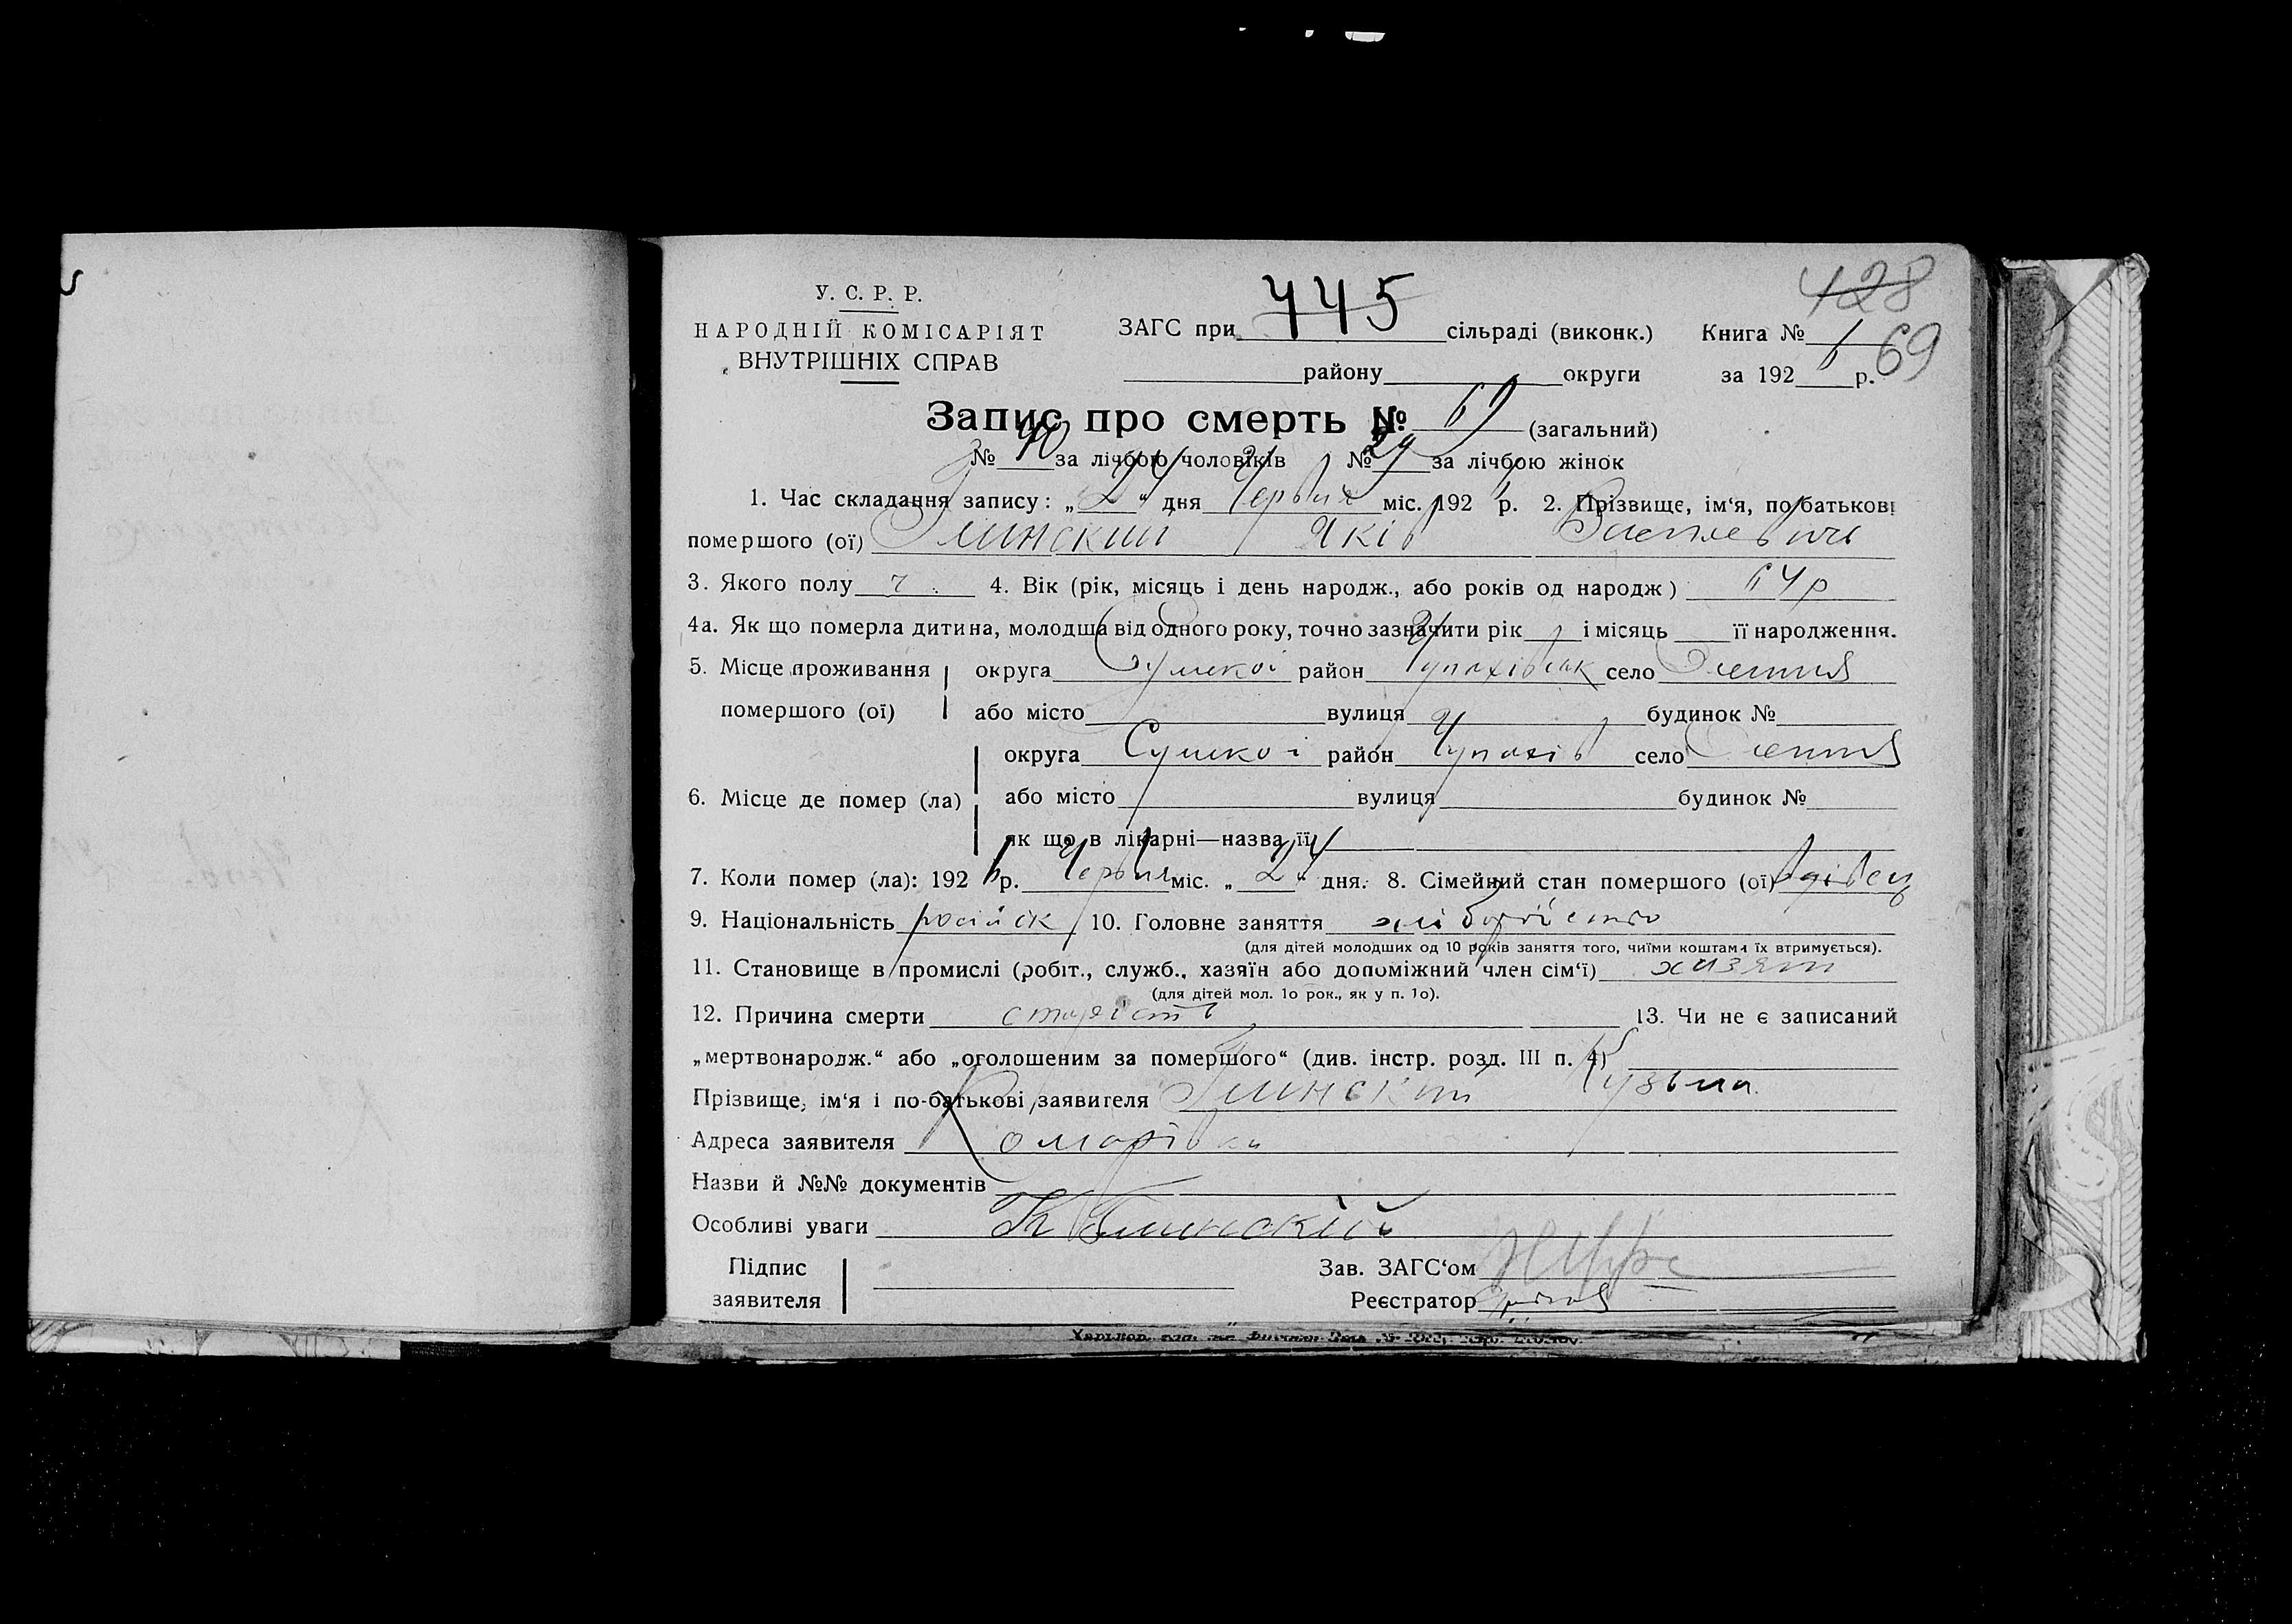 428
У. С. Р. Р.
НАРОДНІЙ КОМІСАРІЯТ
ВНУТРІШНІХ СПРАВ
ЗАГС при 445 сільраді (виконк.) Книга № 69
району округи за 192 6 р.
Запис про смерть № 69 (загальний)
№ 40 за лічбою чоловіків № 29 за лічбою жінок
1. Час складання запису: „24“ дня Червня міс. 192 6 р. 2. Прізвище, ім‘я, по батькові
помершого (ої) Глинский Яків
3. Якого полу ч. 4. Вік (рік, місяць і день народж., або років од народж) 64 р
4а. Як що померла дитина, молодша від одного року, точно зазначити рік і місяць її народження.
5. Місце проживання округа Сумскої район село
помершого (ої) або місто вулиця будинок №
округа Сумскої район Чупахів село
6. Місце де помер (ла) або місто вулиця будинок №
як що в лікарні—назва її
7. Коли помер (ла): 192 6 р. Червня міс. „24“ дня. 8. Сімейний стан помершого (ої) вдівец
9. Національність російск 10. Головне заняття хліборобство
(для дітей молодших од 10 років заняття того, чиїми коштами їх втримується).
11. Становище в промислі (робіт., служб., хазяїн або допоміжний член сім‘ї) хазяїн
(для дітей мол. 1о рок., як у п. 1о).
12. Причина смерти старість 13. Чи не є записаний
„мертвонародж.“ або „оголошеним за помершого“ (див. інстр. розд. III п. 4)
Прізвище, ім‘я і по-батькові заявителя Глинский Кузьма.
Адреса заявителя Комарівка
Назви й №№ документів
Особливі уваги К Глинскій
Підпис Зав. ЗАГС‘ом
заявителя Реєстратор